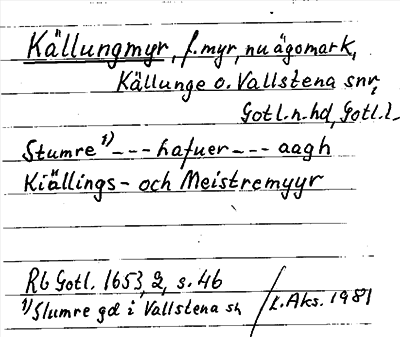 Källungmyr, f. myr, nu ägomark,
Källunge o. Vallstena snr,
Gotl. n. hd, Gotl. l.
Stumre 1) --- hafuer --- aagh
Kiällings- och Meistremyyr
Rb Gotl. 1653, 2, s. 46
1) Slumre gd i Vallstena sn / L. Aks. 1981